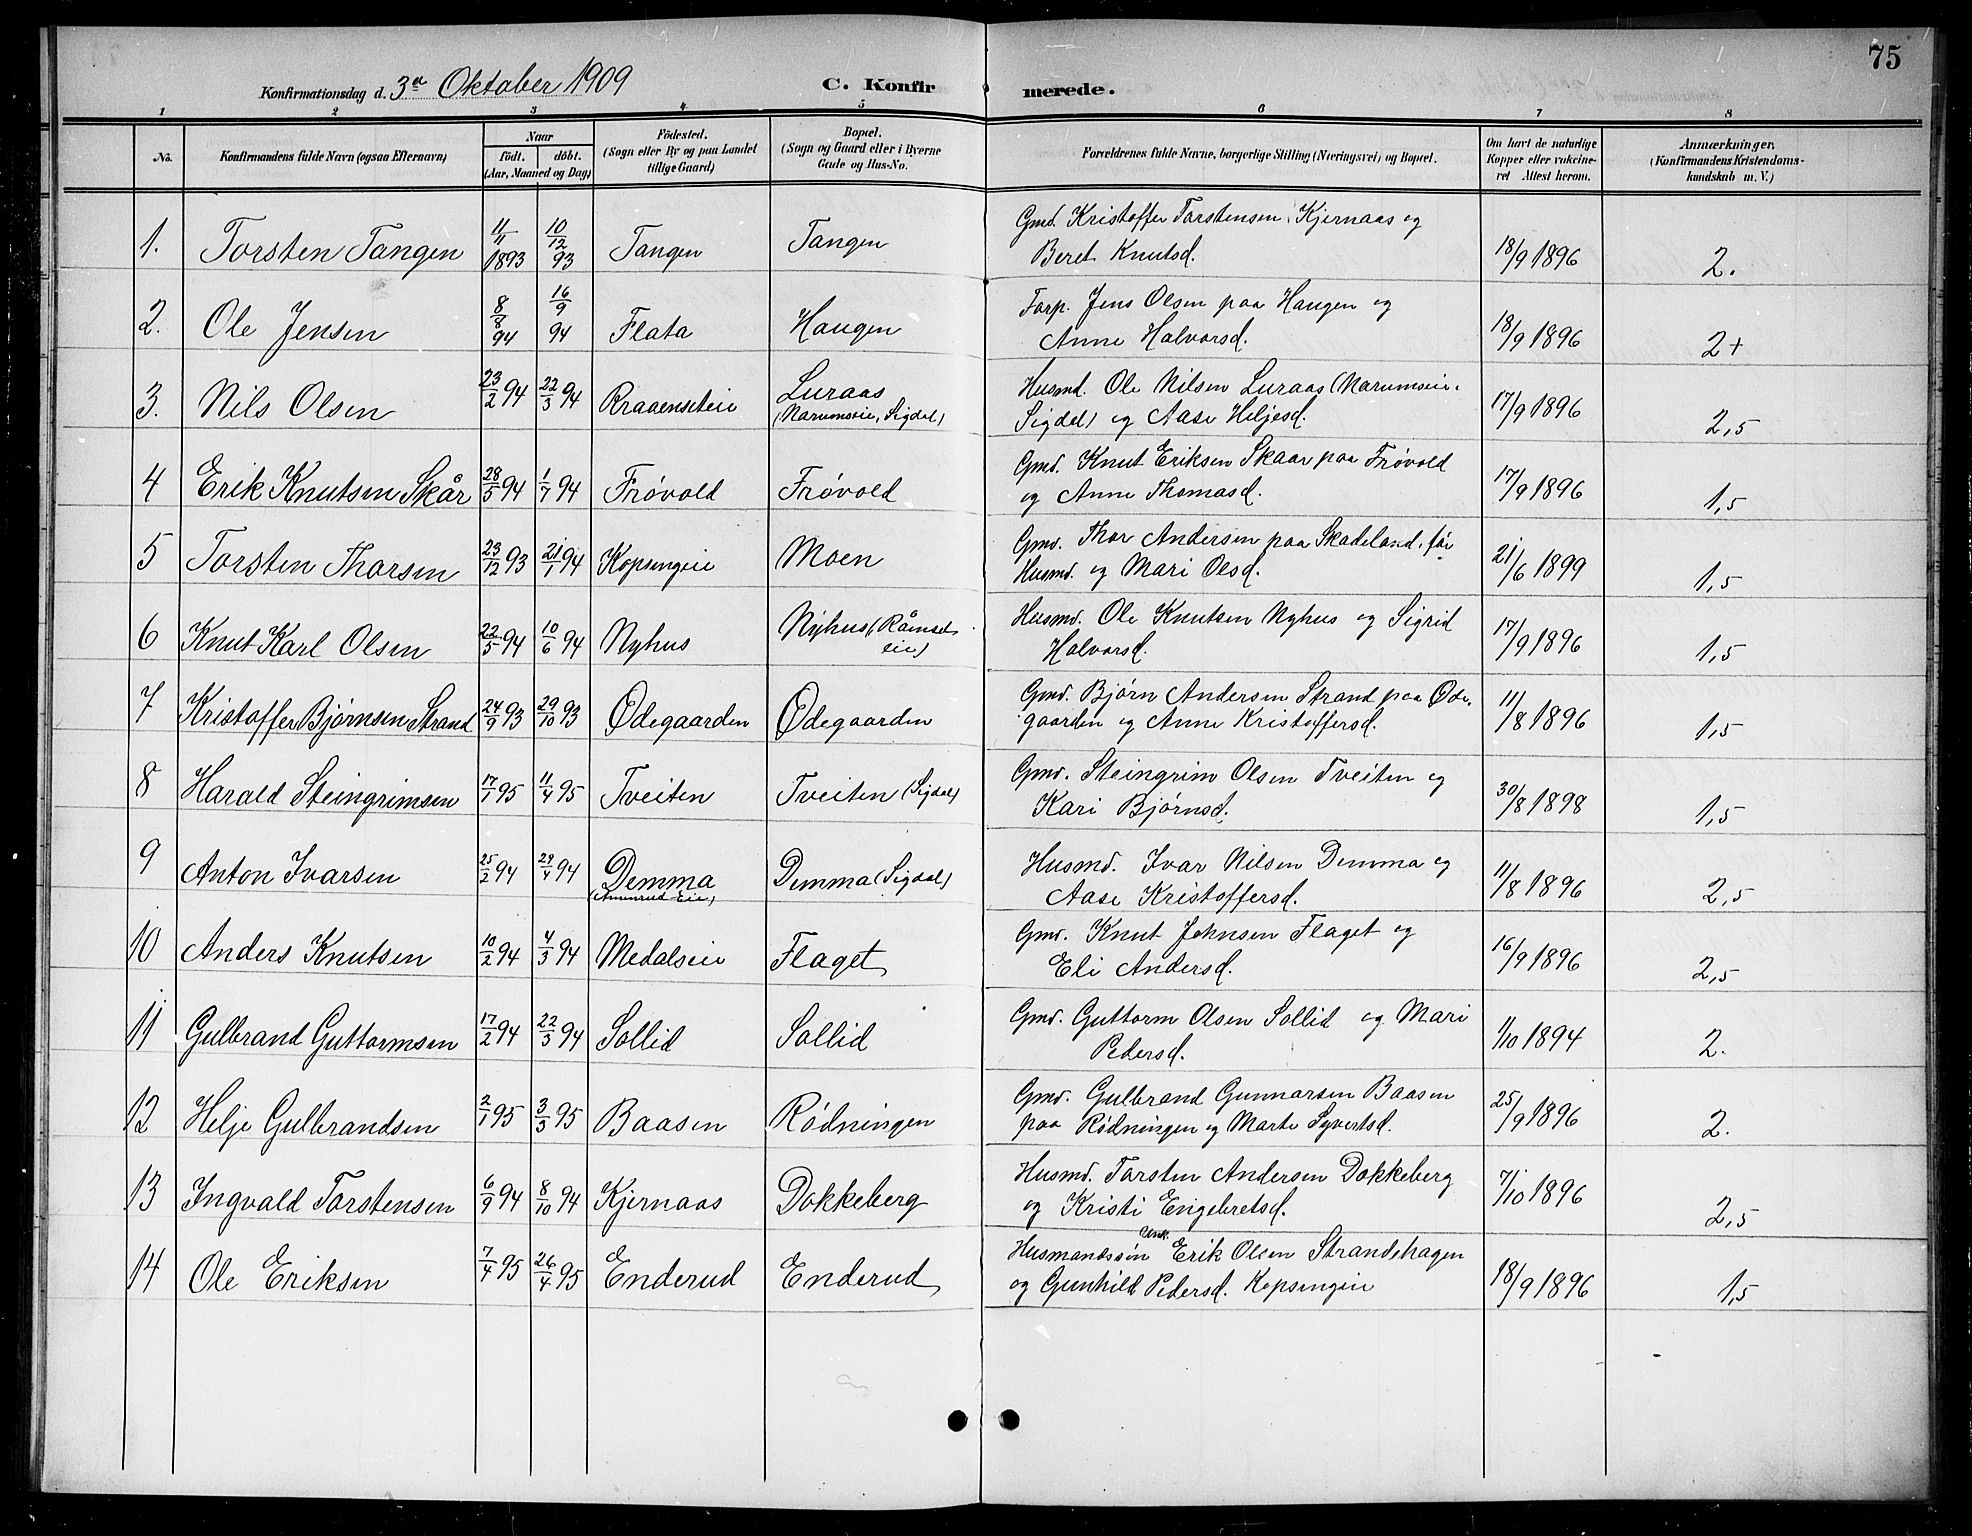 75
Konfirmationsdag d. 3d Oktober 1909
C. Konfirmerede.
1 2 3 4 5 6 7 8
No.
Konfirmandens fulde Navn (ogsaa Efternavn)
Naar
födt. döbt.
(Aar, Maaned og Dag)
Födested.
(Sogn eller By og paa Landet
tillige Gaard)
Bopæl.
(Sogn og Gaard eller i Byerne
Gade og Hus-No.
Forældrenes fulde Navne, borgerlige Stilling (Næringsvei) og Bopæl.
Om havt de naturlige
Kopper eller vakcine-
ret Attest herom.
Anmærkninger,
(Konfirmandens Kristendoms-
kundskab m. V.)
1. Torsten Tangen 11/11 1893 10/12 93 Tangen Tangen Gmd. Kristoffer Torstensen Kjernaas og
Beret Knutsd. 18/9 1896 2.
2. Ole Jensen 8/8 94 16/9 94 Flata Haugen Forp. Jens Olsen paa Haugen og
Anne Halvorsd. 18/9 1896 2+
3. Nils Olsen 23/2 94 22/3 94 Kraaenseteie Luraas
(Narumseie, Sigdal) Husmd. Ole Nilsen Luraas (Narumseie,
Sigdal) og Aase Heljesd. 17/9 1896 2,5
4 Erik Knutsen Skår 28/5 94 1/7 94 Frøvold Frøvold Gmd. Knut Eriksen Skaar paa Frøvold
og Anne Thomasd. 17/9 1896 1,5
5 Torsten Thorsen 23/12 93 21/1 94 Kopsengeie Moen Gmd. Thor Andersen paa Skadeland, før
Husmd. og Mari Olsd. 21/6 1899 1,5
6 Knut Karl Olsen 22/5 94 10/6 94 Nyhus Nyhus (Råmsel
eie) Husmd. Ole Knutsen Nyhus og Sigrid
Halvorsd. 17/9 1896 1,5
7 Kristoffer Bjørnsen Strand 24/9 93 29/10 93 Ødegaarden Ødegaarden Gmd. Bjørn Andersen Strand paa Øde-
gaarden og Anne Kristoffersd. 11/8 1896 1,5
8 Harald Steingrimsen 17/1 95 11/4 95 Tveiten Tveiten (Sigdal) Gmd. Steingrim Olsen Tveiten og
Kari Bjørnsd. 30/8 1898 1,5
9 Anton Ivarsen 25/2 94 29/4 94 Demma
(Amunrud Eie) Demma (Sigdal) Husmd. Ivar Nilsen Demma og
Aase Kristoffersd. 11/8 1896 2,5
10 Anders Knutsen 10/2 94 4/3 94 Medalseie Flaget Gmd. Knut Johnsen Flaget og
Eli Andersd. 16/9 1896 2,5
11 Gulbrand Guttormsen 17/2 94 22/3 94 Sollid Sollid Gmd. Guttorm Olsen Sollid og Mari
Pedersd. 1/10 1894 2.
12 Helje Gulbrandsen 2/1 95 3/3 95 Baasen Rødningen Gmd. Gulbrand Gunnarsen Baasen
paa Rødningen og Marte Syvertsd. 25/9 1896 2.
13 Ingvald Torstensen 6/9 94 8/10 94 Kjernaas Dokkeberg Husmd. Torsten Andersen Dokkeberg
og Kristi Engebretsd. 7/10 1896 2,5
14 Ole Eriksen 7/4 95 26/4 95 Enderud Enderud Husmandssøn Unk. Erik Olsen Strandehagen
og Gunhild Pedersd. Kopsengeie 18/9 1896 1,5